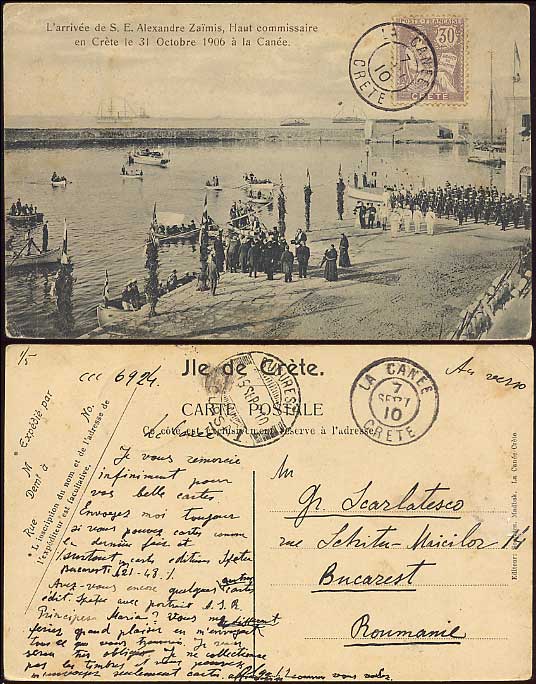 L'arrivée de S. E. Alexandre Zaïmis, Haut commissaire
en Crète le 31 Octobre 1906 à la Canée.
LA CANÉE
7
10
CRÈTE
POSTE FRANÇAISE
30
CRÈTE
1/5
ccc 6924.
Ile de Crète.
CARTE POSTALE
Ce côté est exclusivement réservé à l'adresse
LA CANÉE
7
SEPT
10
CRÈTE
Au verso
* Expédié par
M
No.
Rue
Dem! à
* L'inscription du nom et de l'adresse de
l'expéditeur est facultative.
Je vous remercie
infiniment pour
vos belle cartes
Envoyez moi toujours
si vous pouvez cartes comme
la dernier fois et
surtout cartes editeurs
Bucarest 421-43.
Avez-vous encore quelques cartes
edit. avec portrait A.S.R.
Principesse Maria? Vous me
feriez grand plaisir en m'envoyant
tous ce que vous trouvez. Je vous
serai très obligé. Je ne collectionne
pas les timbres et vous pouvez
m'envoyez seulement cartes
Mr
Gr. Scarlatesco
rue Schitu-Maicilor 14
Bucarest
Roumanie
La Canée-Crète